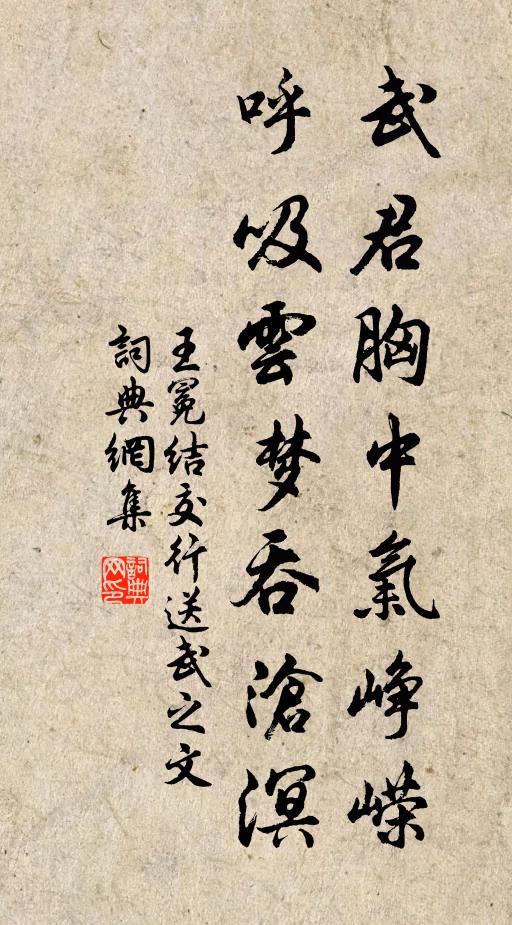 武君胸中氣峥嶸
呼吸雲梦吞滄溟
王冕結交行送武之文
詞典網集
詞典网印